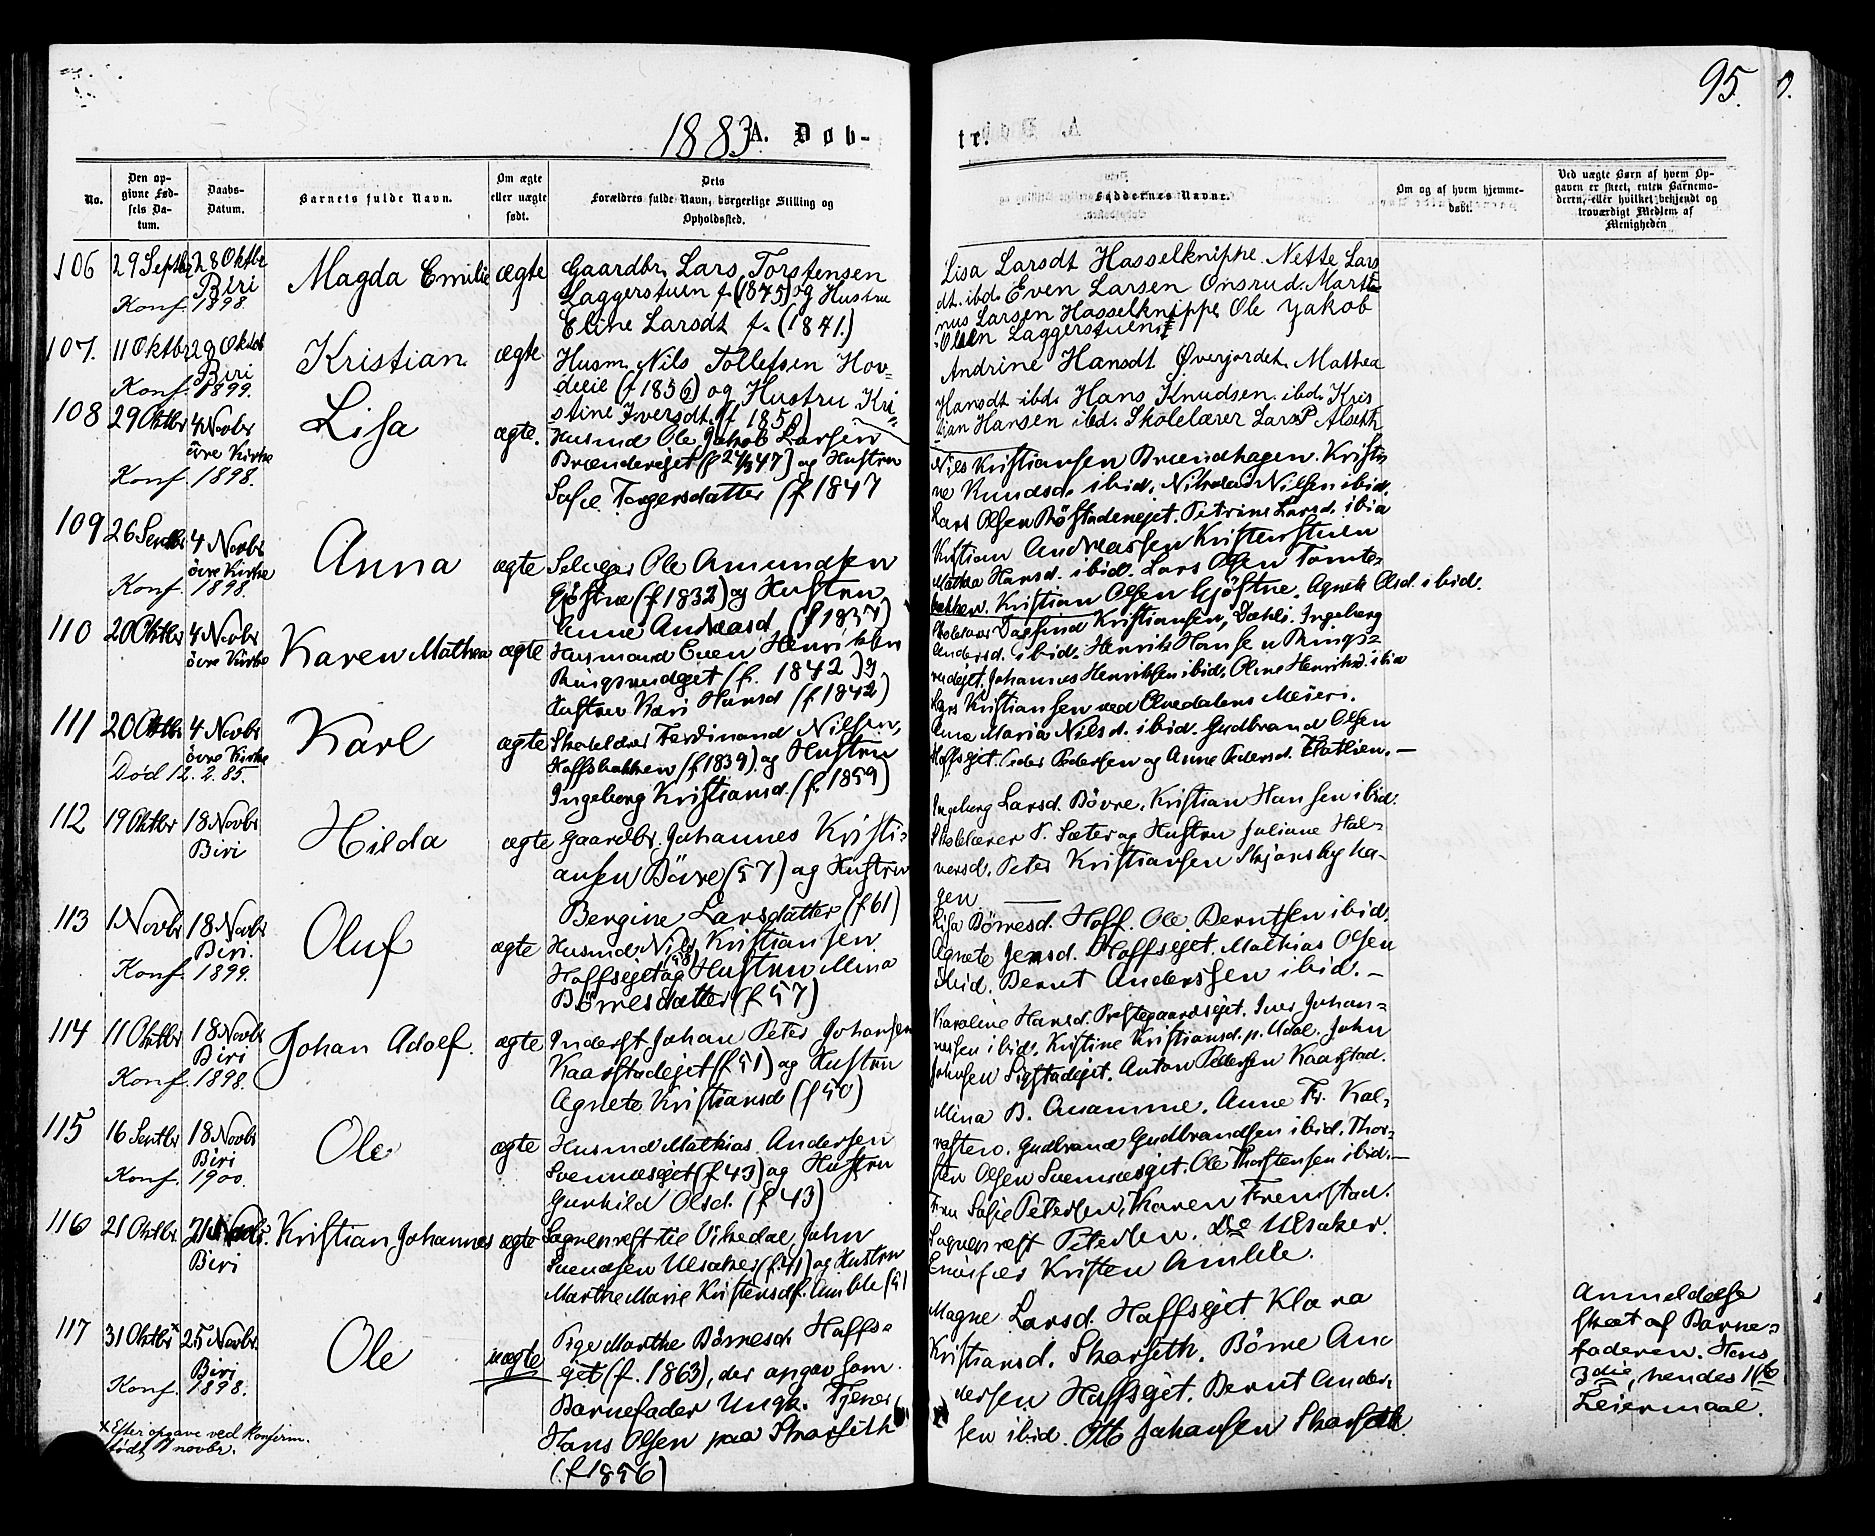 95.
1883 A. Døb-
tr.
No.
Den op-
givne Fød-
sels Da-
tum.
Daabs-
Datum.
Barnets fulde Navn.
Om ægte
eller uægte
født.
Dets
Forældres fulde Navn, borgerlige Stilling og
Opholdssted.
Faddernes Navne.
Om og af hvem hjemme-
døbt.
Ved uægte Børn af hvem Op-
gaven er skeet, enten Barnemo-
deren, eller hvilket bekjendt og
troværdigt Medlem af
Menigheden
106 29 Septbr 28 Oktbr
Biri
Konf. 1898.
Magda Emilie ægte
Gaardbr. Lars Torstensen
Laggerstuen f. (1845) og Hustru
Eline Larsdt f. (1841.)
Lisa Larsdt Hasselknippe. Nette Lars
dt. ibd. Even Larsen Onsrud. Marti
nus Larsen Hasselknippe Ole Jakob
Olsen Laggerstuen
107. 11 Oktbr 28 Oktob
Biri
Konf. 1899.
Kristian ægte
Husm. Nils Tollefsen Hov-
deeie (f 1856) og Hustru Kri-
stine Iversdt. (f 1850)
Andrine Hansdt Øverjordet. Mathea
Hansdt ibd. Hans Knudsen ibd. Kris
tian Hansen ibd. Skolelærer Lars P Alseth
108 29 Oktbr 4 Novbr
övre Kirke
Konf. 1898.
Lisa ægte.
Husmd Ole Jakob Larsen
Brændereiet (f 24/3 47) og Hustru
Sofie Torgersdatter (f 1847
Nils Kristiansen Brændhagen. Kristi
ne Knudsd. ibid. Nilsen ibid.
Lars Olsen Petrine Larsd. ibid
109 26 Septbr 4 Novbr
övre Kirke
Konf. 1898.
Anna ægte
Selveier Ole Amundsen
Gjöstne (f 1832) og Hustru
Anne Andreasd (f 1837)
Kristian Andreassen Kristenstuen
Mathea Hansd. ibid. Lars Olsen Tomte-
bakken. Kristian Olsen Gjöstne. Agnete Olsd. ibid.
110 20 Oktbr 4 Novbr
övre Kirke
Karen Mathea ægte
Husmand Even Henriksen
Ringsrudeiet (f. 1842) og
Hustru Kari Hansd (f 1842)
Skolelærer Dagfind Kristiansen, Dæhli. Ingeborg
Andersd. ibid. Henrik Hansen Rings-
rudejet. Johannes Henriksen ibid. Oline Henriksd. ibid
111 20 Oktbr 4 Novbr
övre Kirke
Död 12. 2. 85.
Karl ægte
Ferdinand Nilsen,
Hoffsbakken (f 1839) og Hustru
Ingeborg Kristiansd. (f. 1859)
Lars Kristiansen ved Meieri.
Ane Maria Nilsd. ibid. Gudbrand Olsen
Hoffsejet. Peder Pedersen og Anne Pedersd.
112 19 Oktbr 18 Novbr
Biri
Hilda ægte
Gaardbr. Johannes Kristi-
ansen Bövre (57) og Hustru
Bergine Larsdatter (f 61)
Ingeborg Larsd. Bövre. Kristian Hansen ibid.
Skolelærer P. Sæter og Hustru Juliane Hal-
versd. Peter Kristiansen Skjønsby ha-
gen
113 1 Novbr 18 Novbr
Biri.
Konf. 1899.
Oluf ægte
Husmd. Nils Kristiansen
Hoffsejet (58) og Hustru Mina
Börresdatter (f 57)
Lisa Börresd. Hoff. Ole Berntsen ibid.
Agnete Jensd. Hoffsejet. Mathias Olsen
ibid. Bernt Anderssen ibid. –
114 11 Oktbr 18 Novbr
Biri
Konf. 1898.
Johan Adolf. ægte
Inderst Johan Peter Johansen
Kaarstadejet (f 51) og Hustru
Agnete Kristiansd (f 50)
Karoline Hansd. Prestegaardsejet. Iver Johan-
nessen ibid. Kristine Kristiansd. p. Udal. John
Johnsen Sigstadejet. Anton Pedersen Kaarstad.
115 16 Septbr 18 Novbr
Biri
Konf. 1900.
Ole ægte
Husmd Mathias Andersen
Svennæsejet (f 43) og Hustru
Gunhild Olsd. (f 43)
Mina B. Anamme. Anne Kr. Kal-
Gudbrand Gudbrandsen ibid. Thor-
sten Olsen Svennæsejet. Ole Thorstensen ibid. –
116 21 Oktbr 21 Novbr.
Biri
Kristian Johannes ægte
Sagnepræst til Vikedal, John
Svendsen Ulsaker (f. 41) og Hustru
Marthe Marie Kristensd f. Amble (51
Fru Sofie Petersen, Karen Fremstad.
Sognepræst Petersen. Do Ulsaker.
Kristen Amble.
117 31 Oktbr x 25 Novbr.
Biri
Konf. 1898.
Ole uægte
Pige Marthe Börresd. Hoffs-
ejet (f. 1863), der opgav som
Barnefader Ungk. Tjener
Hans Olsen paa Skarseth
(f 1856)
Magne Larsd. Hoffsejet Klara
Kristiansd. Skarseth. Börre An
dersen Hoffsejet. Bernt Ander-
sen ibid. Otto Johansen Skarseth.
Anmeldelse
skeet af Barne-
faderen. Hans
3die, hendes 1ste
Leiermaal.
x Efter opgave ved Konfirm.
født 1 novbr.